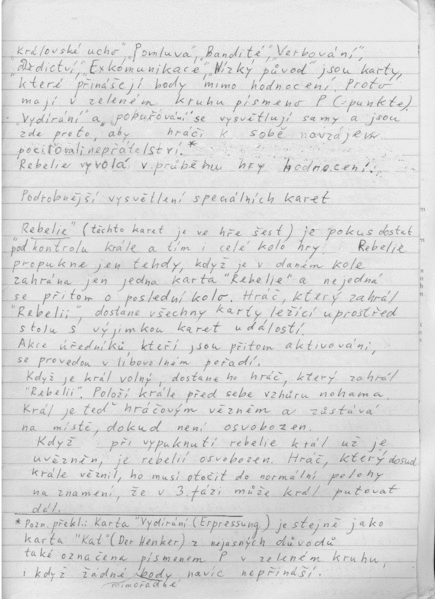 „Královské ucho", „Pomluva", „Bandité", „Verbování",
„Dědictví", „Exkomunikace", „Nízký původ" jsou karty,
které přinášejí body mimo hodnocení. Proto
mají v zeleném kruhu písmeno P (=punkte).
„Vydírání" a „popuřování" se vysvětlují samy a jsou
zde proto, aby hráči k sobě navzájem
pociťovali nepřátelství.*
Rebelie vyvolá v průběhu hry hodnocení.
Podrobnější vysvětlení speciálních karet
„Rebelie" (těchto karet je ve hře šest) je pokus dostat
pod kontrolu krále a tím i celé kolo hry. Rebelie
propukne jen tehdy, když je v daném kole
zahrána jen jedna karta "Rebelie" a nejedná
se přitom o poslední kolo. Hráč, který zahrál
"Rebelii", dostane všechny karty ležící uprostřed
stolu s výjimkou karet událostí.
Akce úředníků kteří jsou přitom aktivováni,
se provedou v libovolném pořadí.
Když je král volný, dostane ho hráč, který zahrál
"Rebelii". Položí krále před sebe vzhůru nohama.
Král je teď hráčovým vězněm a zůstává
na místě, dokud není osvobozen.
Když při vypuknutí rebelie král už je
uvězněn, je rebelií osvobozen. Hráč, který dosud
krále věznil, ho musí otočit do normální polohy
na znamení, že v 3. fázi může král putovat
dál.
* Pozn. překl.: Karta "Vydírání (Erpressung) je stejně jako
karta "Kat" (Der Henker) z nejasných důvodů
také označena písmenem P v zeleném kruhu,
i když žádné body navíc nepřináší.
mimořádné